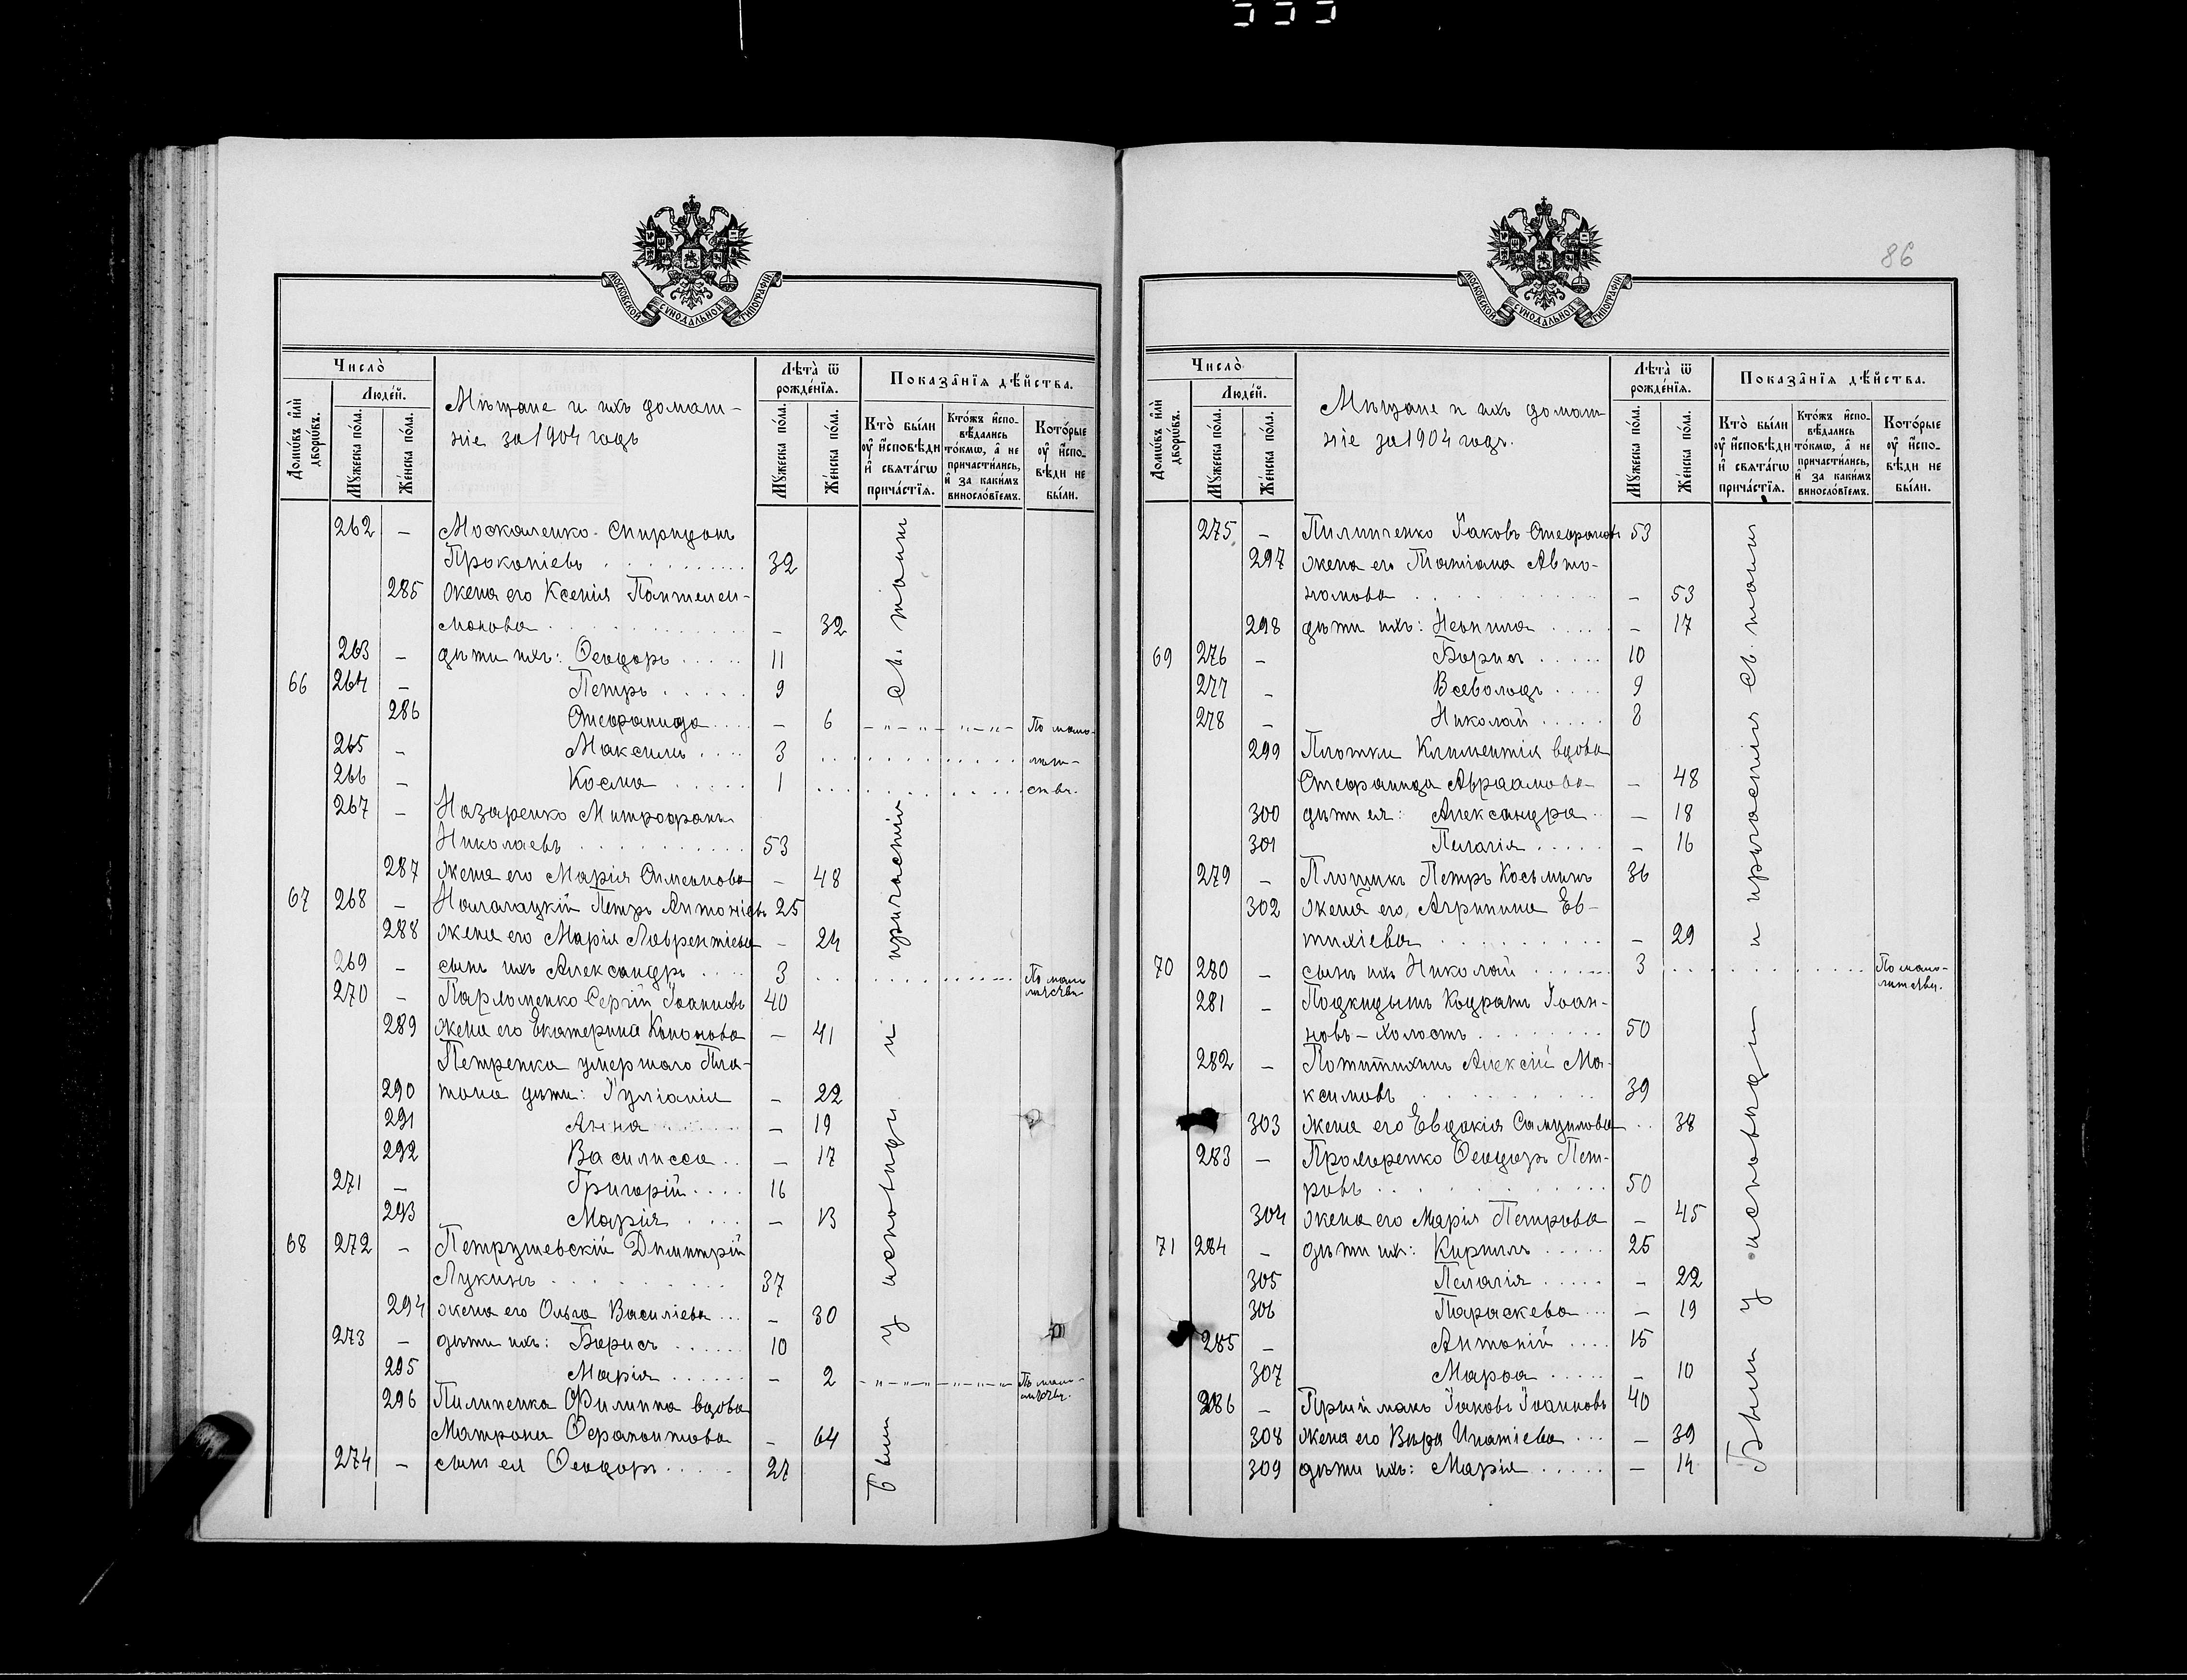 86
МОСКОВСКОЙ СѴНОДАЛЬНОЙ ТИПОГРАФІИ
Число̀
Люде́й.
Домѡ́въ и҆лѝ дворѡ́въ.
Мꙋ́жеска по́ла.
Же́нска по́ла.
Мѣщане и ихъ домаш-
ніе за 1904 годъ
Лѣта̀ ѿ рожде́нїѧ.
Мꙋ́жеска по́ла.
Же́нска по́ла.
Показа̑нїѧ дѣ́йства.
Кто̀ бы́ли ᲂу҆ и҆сповѣ́ди и҆ свѧта́гѡ прича́стїѧ.
Кто́жъ и҆спо-
вѣ́дались то́кмѡ, а҆ не причасти́лись, и҆ за каки́мъ винословїемъ.
Кото́рые ᲂу҆ и҆спо-
вѣ́ди не бы́ли.
262 – Москаленко Спиридонъ
Прокопіевъ 32
285 жена его Ксенія Пантелеи-
монова – 32
263 – дѣти ихъ: Ѳеодоръ 11
66 264 – Петръ 9
286 Стефанида – 6 По мало-
265 – Максимъ 3 лѣт-
266 – Косма 1 ству.
267 – Назаренко Митрофанъ
Николаевъ 53
287 жена его Марія Симеонова – 48
67 268 – Петръ Антоніевъ 25
288 жена его Марія Лаврентіева – 24
269 – сынъ ихъ Александръ 3 По мало
лѣтству
270 – Пархоменко Сергій Іоанновъ 40
289 жена его Екатерина Кононова – 41
Петренка умершаго Пла-
290 тона дѣти: Іуліанія – 22
291 Анна – 19
292 Василисса – 17
271 – Григорій 16
293 Марія – 13
68 272 – Петрушевскій Димитрій
Лукинъ 37
294 жена его Ольга Василіева – 30
273 – дѣти ихъ: Борисъ 10
295 Марія – 2 По мало-
лѣтству.
296 Пилипенка Филиппа вдова
Матрона Ѳерапонтова – 64
274 – сынъ ея Ѳеодоръ 27
Были у исповѣди и причастія св. таинъ
Число̀
Люде́й.
Домѡ́въ и҆лѝ дворѡ́въ.
Мꙋ́жеска по́ла.
Же́нска по́ла.
Мѣщане и ихъ домаш
ніе за 1904 годъ.
Лѣта̀ ѿ рожде́нїѧ.
Мꙋ́жеска по́ла.
Же́нска по́ла.
Показа̑нїѧ дѣ́йства.
Кто̀ бы́ли ᲂу҆ и҆сповѣ́ди и҆ свѧта́гѡ прича́стїѧ.
Кто́жъ и҆спо-
вѣ́дались то́кмѡ, а҆ не причасти́лись, и҆ за каки́мъ винословїемъ.
Кото́рые ᲂу҆ и҆спо-
вѣ́ди не бы́ли.
275 – Пилипченко Іаковъ Стефановъ 53
297 жена его Татіана Авто-
номова – 53
298 дѣти ихъ: Неонила – 17
69 276 – Борисъ 10
277 – Всеволодъ 9
278 – Николай 8
299 Плотки Климентія вдова
Стефанида Авраамова – 48
300 дѣти ея: Александра – 18
301 Пелагія – 16
279 – Петръ Косьминъ 36
302 жена его Агрипина Ев-
тихіева – 29
70 280 – сынъ ихъ Николай 3 По мало-
лѣтству.
281 – Подкидышъ Кодратъ Іоан-
новъ – холостъ 50
282 – Алексій Ма-
ксимовъ 39
303 жена его Евдокія Самуилова 38
283 – Ѳеодоръ Пет-
ровъ 50
304 жена его Марія Петрова – 45
71 284 – дѣти ихъ: Кириллъ 25
305 Пелагія – 22
306 Параскева – 19
285 – Антоній 15
307 Марѳа – 10
286 – Пріймакъ Іаковъ Іоанновъ 40
308 жена его Вѣра Игнатіева – 39
309 дѣти ихъ: Марія – 14
Были у исповѣди и причастія св. таинъ
МОСКОВСКОЙ СѴНОДАЛЬНОЙ ТИПОГРАФІИ